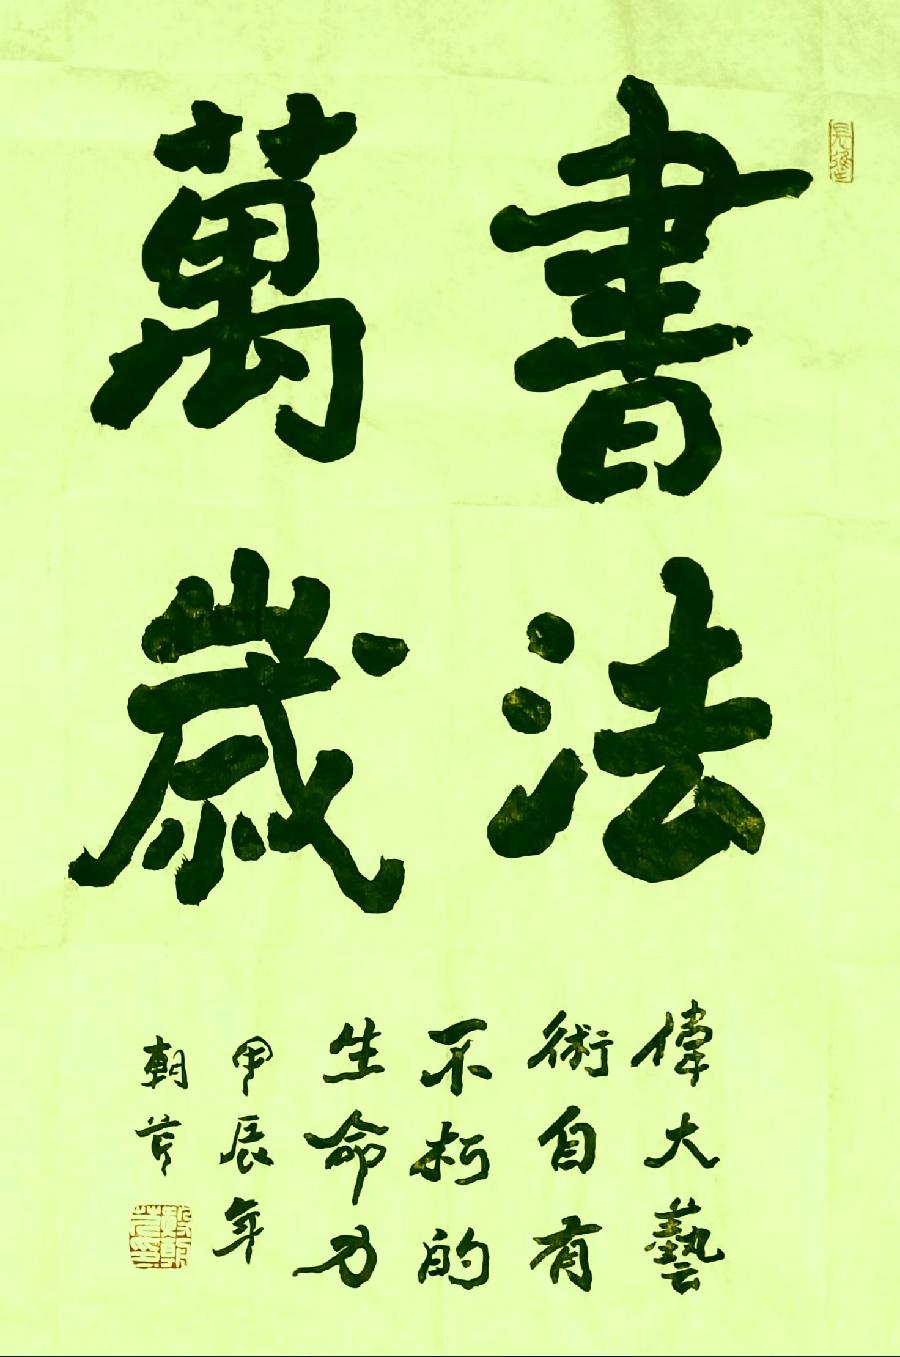 書法
萬歲
偉大藝
術自有
不朽的
生命力
甲辰年
朝芹